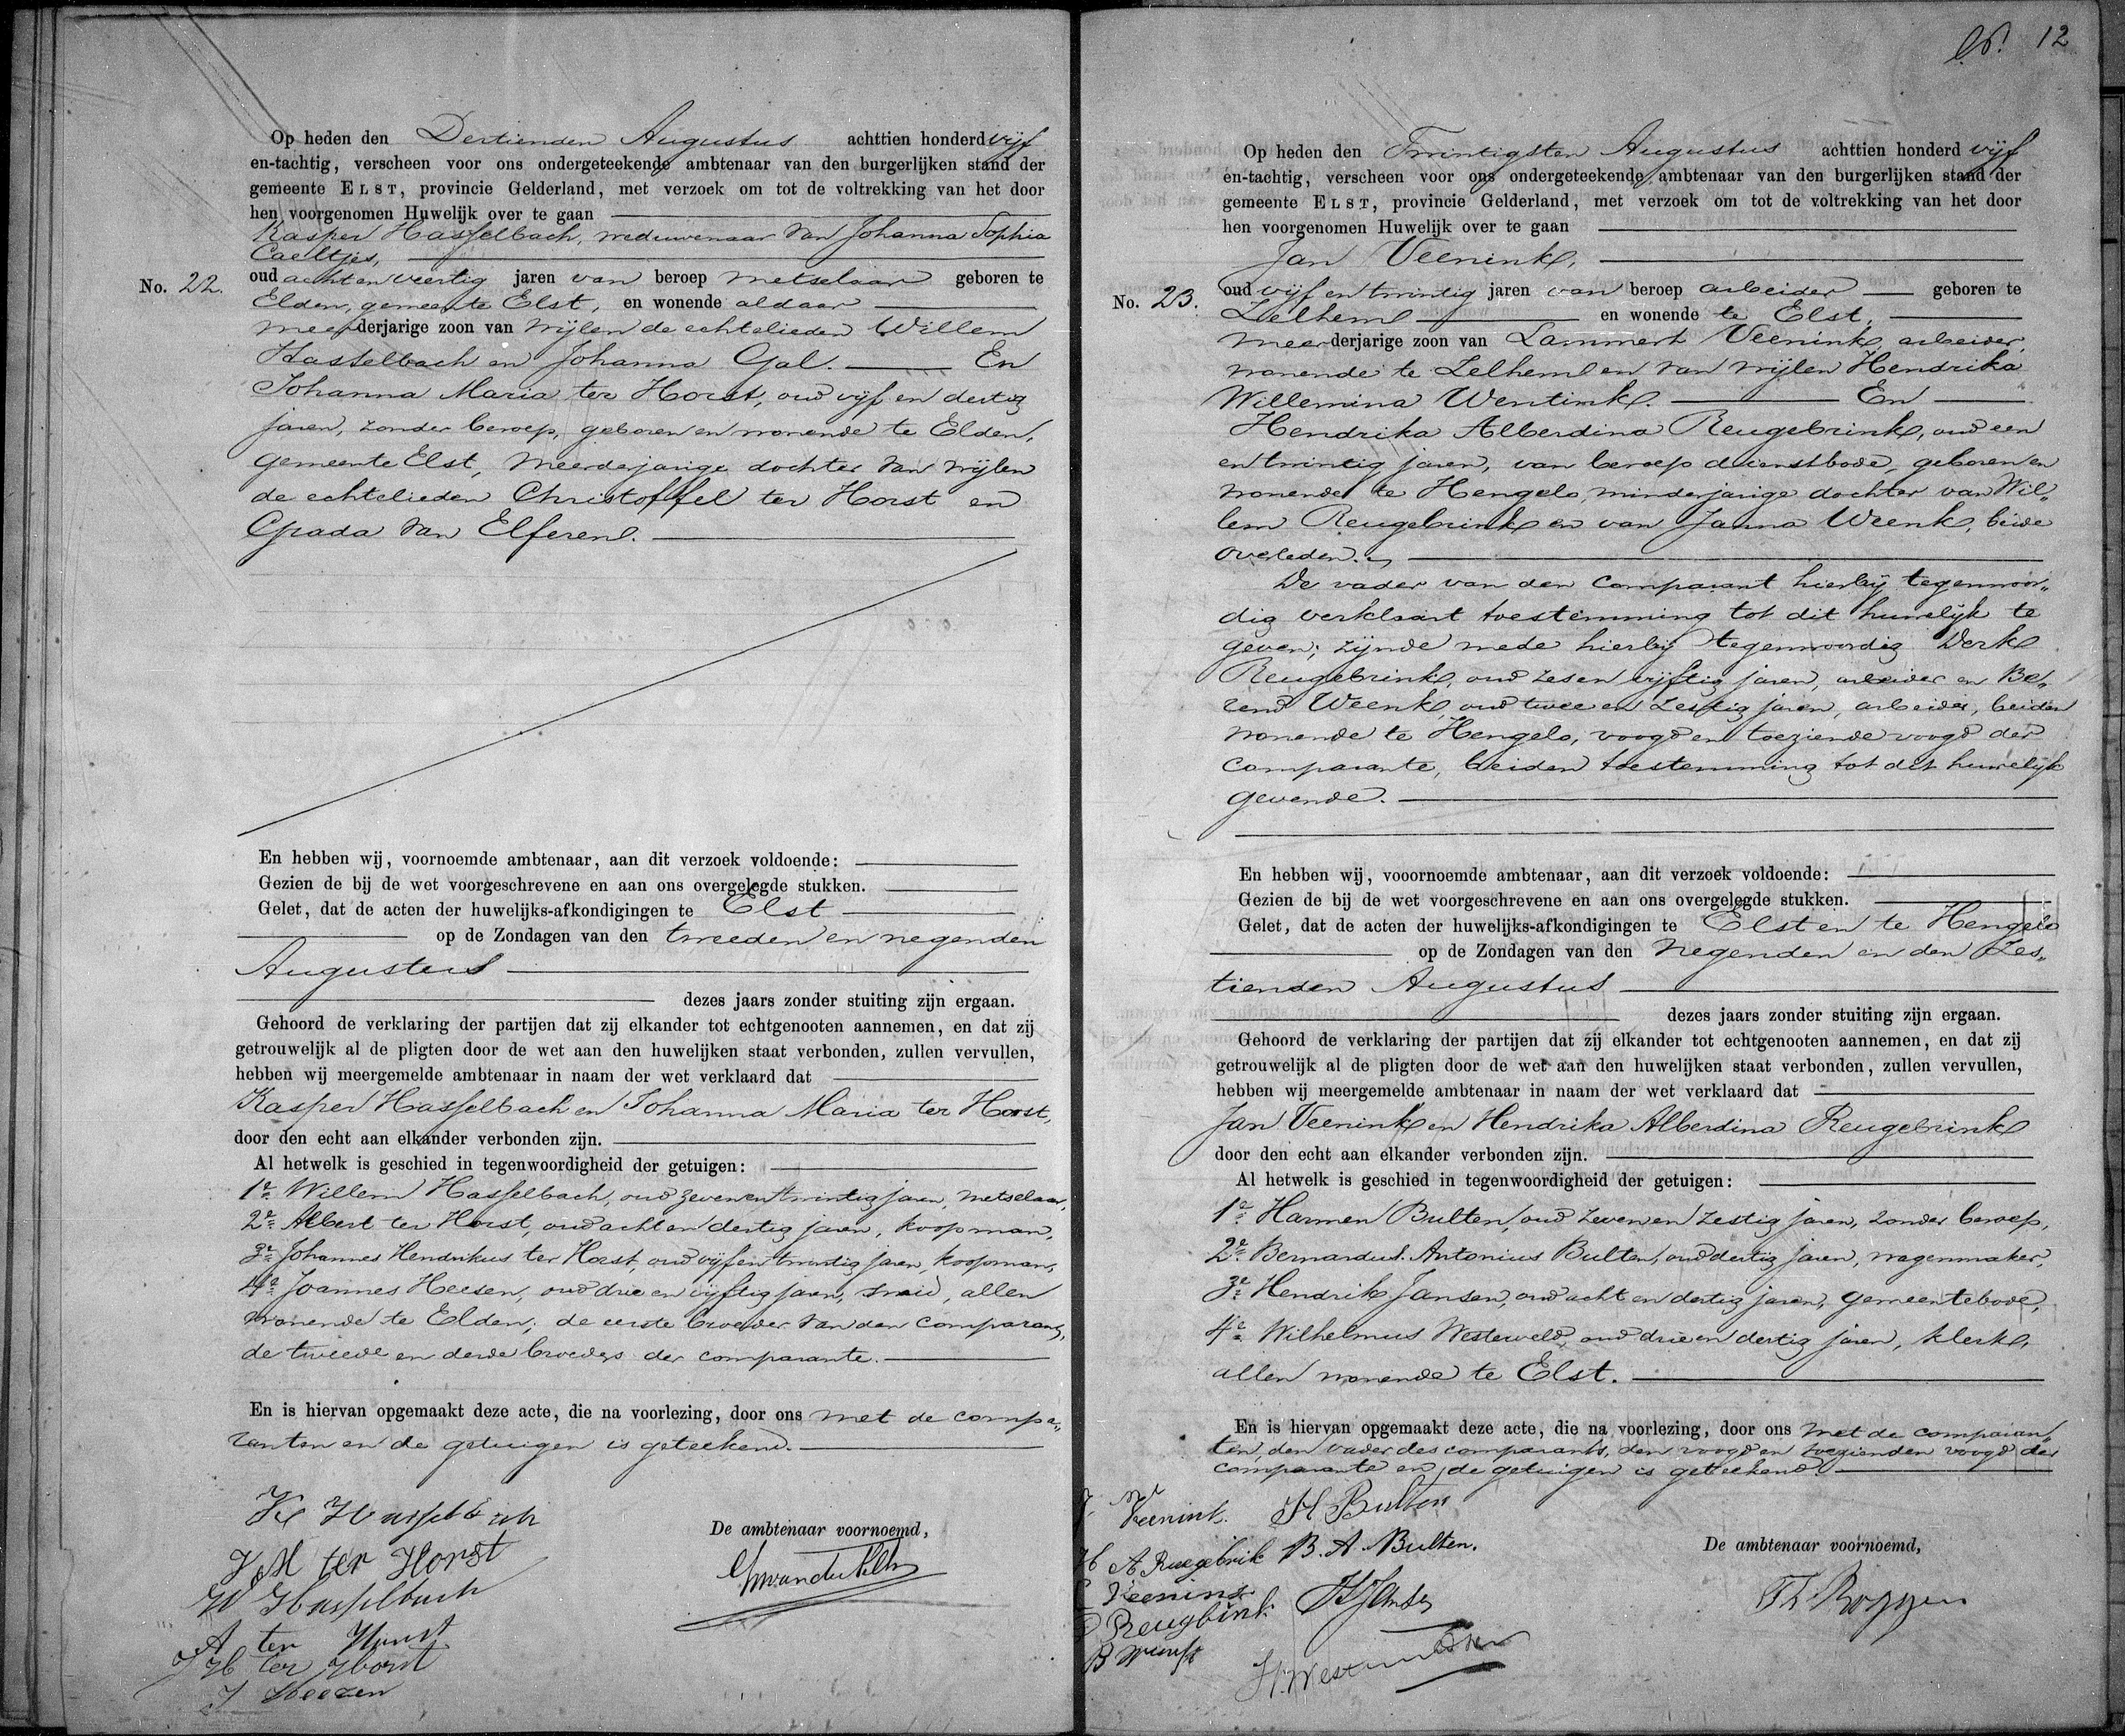 Op heden den Dertienden Augustus achttien honderd vijf
en-tachtig, verscheen voor ons ondergeteekende ambtenaar van den burgerlijken stand der
gemeente ELST, provincie Gelderland, met verzoek om tot de voltrekking van het door
hen voorgenomen Huwelijk over te gaan
Kasper Hasselbach, weduwenaar van Johanna Sophia
Caeltjes,
No. 22. oud acht en veertig jaren van beroep metselaar geboren te
Elden, gemeente Elst, en wonende aldaar
meerderjarige zoon van wijlen de echtelieden Willem
Hasselbach en Johanna Gal. En
Johanna Maria ter Horst, oud vijf en dertig
jaren, zonder beroep, geboren en wonende te Elden,
gemeente Elst, meerderjarige dochter van wijlen
de echtelieden Christoffel ter Horst en
Grada van Elferen.
En hebben wij, voornoemde ambtenaar, aan dit verzoek voldoende:
Gezien de bij de wet voorgeschrevene en aan ons overgelegde stukken.
Gelet, dat de acten der huwelijks-afkondigingen te Elst
op de Zondagen van den tweeden en negenden
Augustus
dezes jaars zonder stuiting zijn ergaan.
Gehoord de verklaring der partijen dat zij elkander tot echtgenooten aannemen, en dat zij
getrouwelijk al de pligten door de wet aan den huwelijken staat verbonden, zullen vervullen,
hebben wij meergemelde ambtenaar in naam der wet verklaard dat
Kasper Hasselbach en Johanna Maria ter Horst,
door den echt aan elkander verbonden zijn.
Al hetwelk is geschied in tegenwoordigheid der getuigen:
1e Willem Hasselbach, oud zeven en twintig jaren, metselaar,
2e Albert ter Horst, oud acht en dertig jaren, koopman,
3e Johannes Hendrikus ter Horst, oud vijf en twintig jaren, koopman,
4e Joannes Heesen, oud drie en vijftig jaren, smid, allen
wonende te Elden; de eerste broeder van den comparant,
de tweede en derde broeders der comparante.
En is hiervan opgemaakt deze acte, die na voorlezing, door ons met de compa„
ranten en de getuigen is geteekend.
K Hasselbach
J M ter Horst
W Hasselbach
A ter Horst
J H ter Horst
J Heezen
De ambtenaar voornoemd,
12
Op heden den Twintigsten Augustus achttien honderd vijf
en-tachtig, verscheen voor ons ondergeteekende ambtenaar van den burgerlijken stand der
gemeente ELST, provincie Gelderland, met verzoek om tot de voltrekking van het door
hen voorgenomen Huwelijk over te gaan
Jan Veenink,
No. 23. oud vijf en twintig jaren van beroep arbeider geboren te
Zelhem en wonende te Elst,
meerderjarige zoon van Lammert Veenink, arbeider,
wonende te Zelhem en van wijlen Hendrika
Willemina Wentink. En
Hendrika Alberdina Reugebrink, oud een
en twintig jaren, van beroep dienstbode, geboren en
wonende te Hengelo, minderjarige dochter van Wil„
lem Reugebrink en van Janna Weenk, beide
overleden.
De vader van den comparant hierbij tegenwoor„
dig verklaart toestemming tot dit huwelijk te
geven; zijnde mede hierbij tegenwoordig Derk
Reugebrink, oud zes en vijftig jaren, arbeider en Be„
rend Weenk, oud twee en zestig jaren, arbeider, beiden
wonende te Hengelo, voogd en toeziende voogd der
comparante, beiden toestemming tot dit huwelijk
gevende.
En hebben wij, vooornoemde ambtenaar, aan dit verzoek voldoende:
Gezien de bij de wet voorgeschrevene en aan ons overgelegde stukken.
Gelet, dat de acten der huwelijks-afkondigingen te Elst en te Hengelo
op de Zondagen van den negenden en den Zes„
tienden Augustus
dezes jaars zonder stuiting zijn ergaan.
Gehoord de verklaring der partijen dat zij elkander tot echtgenooten aannemen, en dat zij
getrouwelijk al de pligten door de wet aan den huwelijken staat verbonden, zullen vervullen,
hebben wij meergemelde ambtenaar in naam der wet verklaard dat
Jan Veenink en Hendrika Alberdina Reugebrink
door den echt aan elkander verbonden zijn.
Al hetwelk is geschied in tegenwoordigheid der getuigen:
1e Harmen Bulten, oud zeven en zestig jaren, zonder beroep,
2e Bernardus Antonius Bulten, oud dertig jaren, wagenmaker,
3e Hendrik Jansen, oud acht en dertig jaren, gemeentebode,
4e Wilhelmus Westerveld, oud drie en dertig jaren, klerk,
allen wonende te Elst.
En is hiervan opgemaakt deze acte, die na voorlezing, door ons met de comparan„
ten, den vader des comparants, den voogd en toezienden voogd der
comparante en de getuigen is geteekend.
J Veenink. H Bulten
H A Ruegebrik B. A. Bulten.
L Veenink
D Reugbink HJansen
B Wenk
De ambtenaar voornoemd,
Th. Roggen